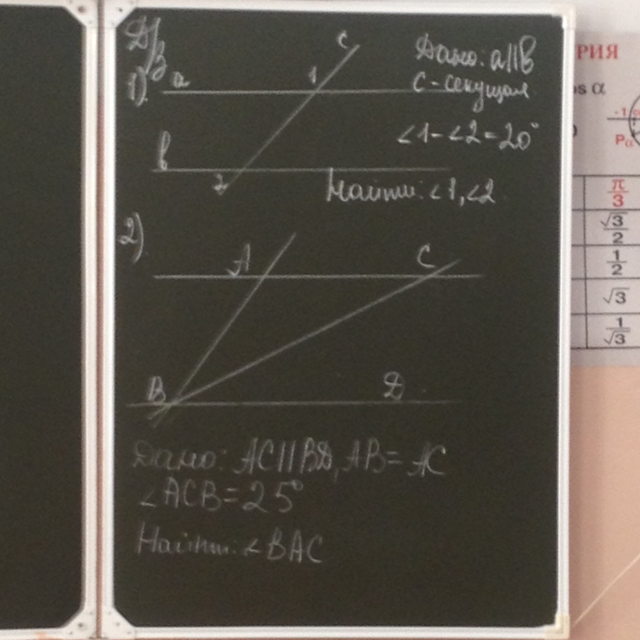 Д/з
1)
a
1
c
b
2
Дано: a||b
c-секущая
∠1-∠2=20°
Найти: ∠1, ∠2
2)
A
C
B
D
Дано: AC||BD, AB=AC
∠ACB=25°
Найти: ∠BAC
РИЯ
os α
π/3
√3/2
1/2
√3
1/√3